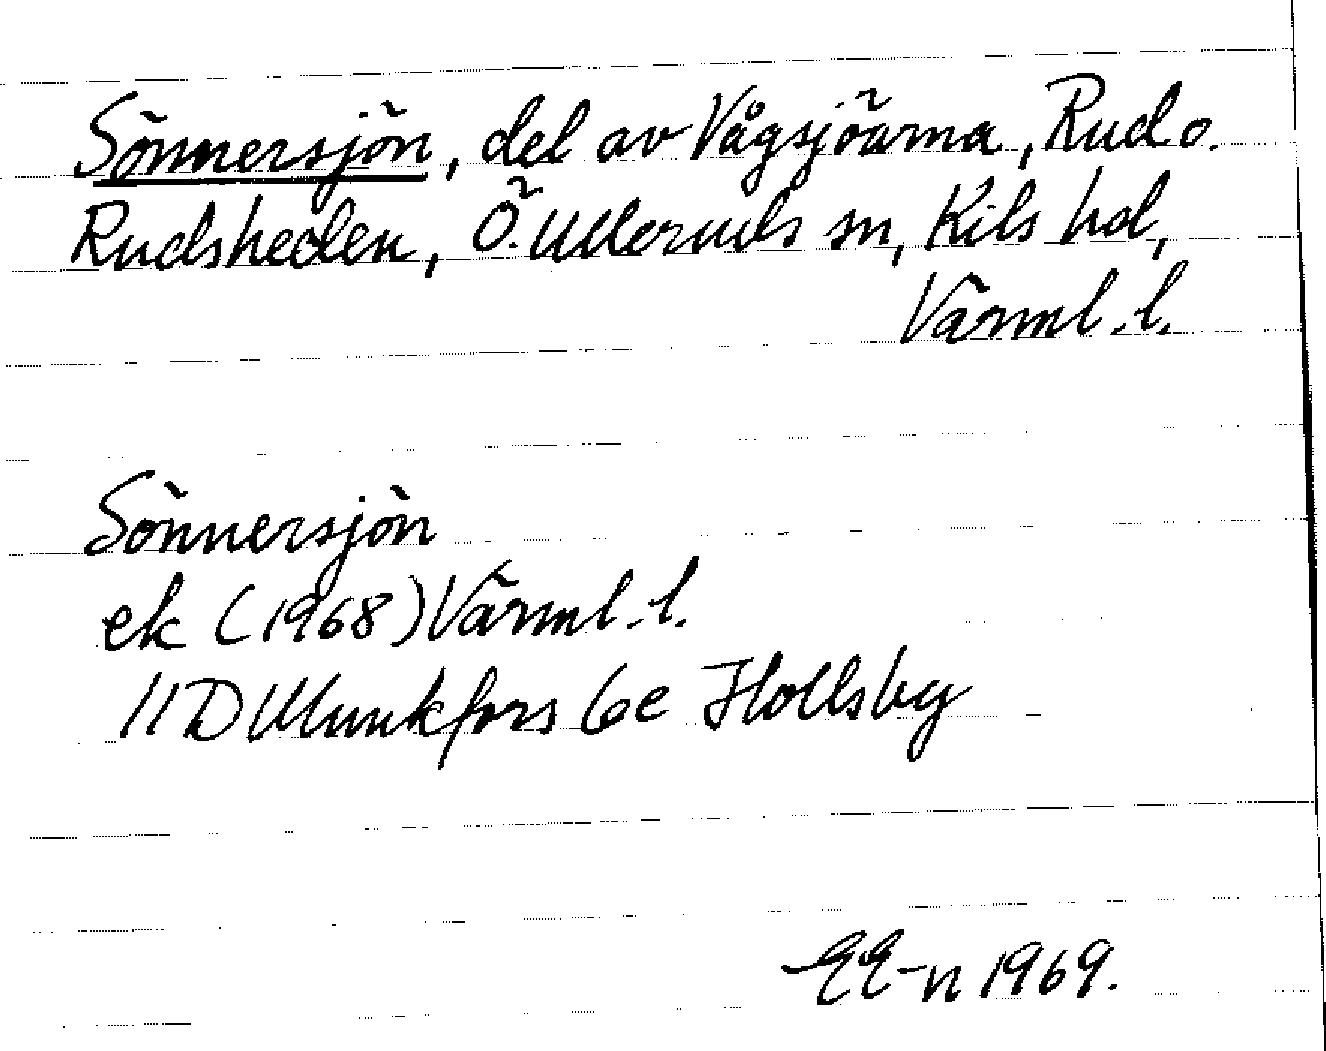 Sönnersjön, del av Vågsjöarna, Rud o.
Rudsheden, Ö. Ulleruds sn, Kils hd,
Värml. l.
Sönnersjön
ek (1968) Värml. l.
11D Munkfors 6e Holsby
EE-n 1969.